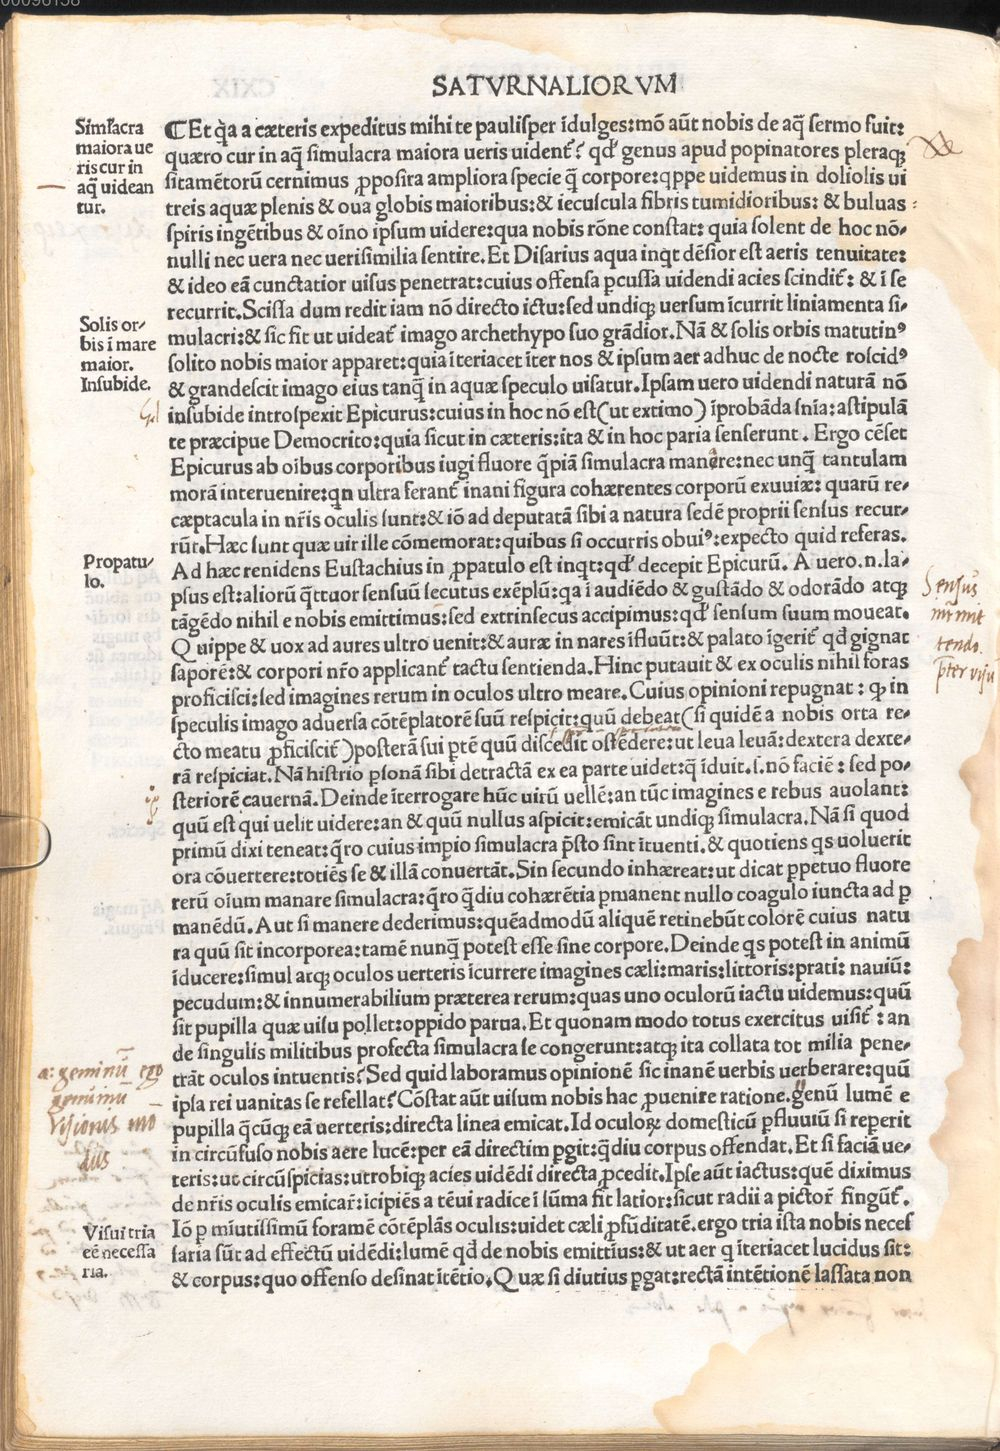 SATVRNALIORVM
Siml'acra
maiora ue
ris cur in
aq̃ uidean
tur.
Solis or-
bis ĩ mare
maior.
Insubide.
Propatu-
lo.
Visui tria
eẽ necessa
ria.
Sensus
mittendo
pter visũ
a: geminũ ego
genuinũ
Visionis mo
dus
¶Et q̃a a cæteris expeditus mihi te paulisper ĩdulges:mõ aũt nobis de aq̃ sermo fuit:
quæro cur in aq̃ simulacra maiora ueris uidenť? qď genus apud popinatores pleraqꝫ
sitamẽtorũ cernimus ꝓposita ampliora specie q̃ corpore:qppe uidemus in doliolis ui
treis aquæ plenis & oua globis maioribus:& iecuscula fibris tumidioribus: & buluas
spiris ingẽtibus & oĩno ipsum uidere:qua nobis rõne constat: quia solent de hoc nõ-
nulli nec uera nec uerisimilia sentire. Et Disarius aqua inqt dẽsior est aeris tenuitate:
& ideo eã cunctatior uisus penetrat:cuius offensa ꝑcussa uidendi acies scindiť: & ĩ se
recurrit. Scissa dum redit iam nõ directo ictu:sed undiqꝫ uersum ĩcurrit liniamenta si-
mulacri:& sic fit ut uideať imago archethypo suo grãdior. Nã & solis orbis matutinꝰ
solito nobis maior apparet:quia ĩteriacet ĩter nos & ipsum aer adhuc de nocte roscidꝰ
& grandescit imago eius tanq̃ in aquæ speculo uisatur. Ipsam uero uidendi naturã nõ
insubide introspexit Epicurus:cuius in hoc nõ est(ut extimo) ĩprobãda snĩa:astipulã
te præcipue Democrito:quia sicut in cæteris:ita & in hoc paria senserunt. Ergo cẽset
Epicurus ab oĩbus corporibus iugi fluore q̃piã simulacra manere:nec unq̃ tantulam
morã interuenire:qn ultra feranť inani figura cohærentes corporũ exuuiæ: quarũ re-
cæptacula in nr̃is oculis sunt:& iõ ad deputatã sibi a natura sedẽ proprii sensus recur-
rũt. Hæc sunt quæ uir ille cõmemorat:quibus si occurris obuiꝰ:expecto quid referas.
Ad hæc renidens Eustachius in ꝓpatulo est inqt:qď decepit Epicurũ. A uero.n.la-
psus est:aliorũ q̃ttuor sensuũ secutus exẽplũ:qa ĩ audiẽdo & gustãdo & odorãdo atqꝫ
tãgẽdo nihil e nobis emittimus:sed extrinsecus accipimus:qď sensum suum moueat.
Quippe & uox ad aures ultro uenit:& auræ in nares ĩfluũt:& palato ĩgeriť qď gignat
saporẽ:& corpori nr̃o applicanť tactu sentienda. Hinc putauit & ex oculis nihil foras
proficisci:sed imagines rerum in oculos ultro meare. Cuius opinioni repugnat : ꝙ in
speculis imago aduersa cõtẽplatorẽ suũ respicit:quũ debeat(si quidẽ a nobis orta re-
cto meatu ꝓficisciť)posterã sui ptẽ quũ discedit ostẽdere:ut leua leuã:dextera dexte-
rã respiciat. Nã histrio ꝑsonã sibi detractã ex ea parte uidet:q̃ ĩduit.i.nõ faciẽ : sed po-
steriorẽ cauernã. Deinde ĩterrogare hũc uirũ uellẽ:an tũc imagines e rebus auolant:
quũ est qui uelit uidere:an & quũ nullus aspicit:emicãt undiqꝫ simulacra. Nã si quod
primũ dixi teneat:q̃ro cuius impio simulacra p̃sto sint ĩtuenti.& quotiens qs uoluerit
ora cõuertere:totiẽs se & illã conuertãt. Sin secundo inhæreat:ut dicat ꝑpetuo fluore
rerũ oĩum manare simulacra:q̃ro q̃diu cohærẽtia ꝑmanent nullo coagulo iuncta ad ꝑ
manẽdũ. Aut si manere dederimus:quẽadmodũ aliquẽ retinebũt colorẽ cuius natu
ra quũ sit incorporea:tamẽ nunq̃ potest esse sine corpore. Deinde qs potest in animũ
ĩducere:simul atqꝫ oculos uerteris ĩcurrere imagines cæli:maris:littoris:prati: nauiũ:
pecudum:& innumerabilium præterea rerum:quas uno oculorũ iactu uidemus:quũ
sit pupilla quæ uisu pollet:oppido parua. Et quonam modo totus exercitus uisiť : an
de singulis militibus profecta simulacra se congerunt:atqꝫ ita collata tot milia pene-
trãt oculos intuentis? Sed quid laboramus opinionẽ sic inanẽ uerbis uerberare:quũ
ipsa rei uanitas se refellat? Cõstat aũt uisum nobis hac ꝓuenire ratione. genũ lumẽ e
pupilla q̃cũqꝫ eã uerteris:directa linea emicat. Id oculoꝝ domesticũ ꝓfluuiũ si reperit
in circũfuso nobis aere lucẽ:per eã directim ꝑgit:q̃diu corpus offendat. Et si faciã ue-
teris:ut circũspicias:utrobiqꝫ acies uidẽdi directa ꝓcedit. Ipse aũt iactus:quẽ diximus
de nr̃is oculis emicar̃:icipiẽs a tẽui radice ĩ sũma fit latior:sicut radii a pictor̃ fingũť.
Iõ ꝑ mĩutissimũ foramẽ cõtẽplãs oculus:uidet cæli ꝓfũditatẽ. ergo tria ista nobis necef
saria sũt ad effectũ uidẽdi:lumẽ qď de nobis emittĩus:& ut aer q ĩteriacet lucidus sit:
& corpus:quo offenso desinat ĩtẽtio. Quæ si diutius ꝑgat:rectã intẽtionẽ lassata non